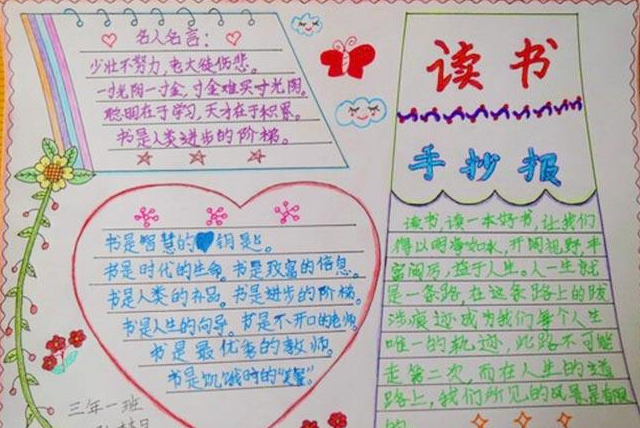 名人名言：
少壮不努力，老大徒伤悲。
一寸光阴一寸金，寸金难买寸光阴。
聪明在于学习，天才在于积累。
书是人类进步的阶梯。
读书
手抄报
书是智慧的钥匙。
书是时代的生命。书是致富的信息。
书是人类的补品。书是进步的阶梯。
书是人生的向导。书是不开口的老师。
书是最优秀的教师。
书是饥饿时的"美餐"。
读书，读一本好书，让我们
得以明净如水，开阔视野，丰
富阅历，益于人生。人一生就
是一条路，在这条路上的跋
涉痕迹成为我们每个人生
唯一的轨迹，此路不可能
走第二次，而在人生的道
路上，我们所见的风景是有限
的
三年一班